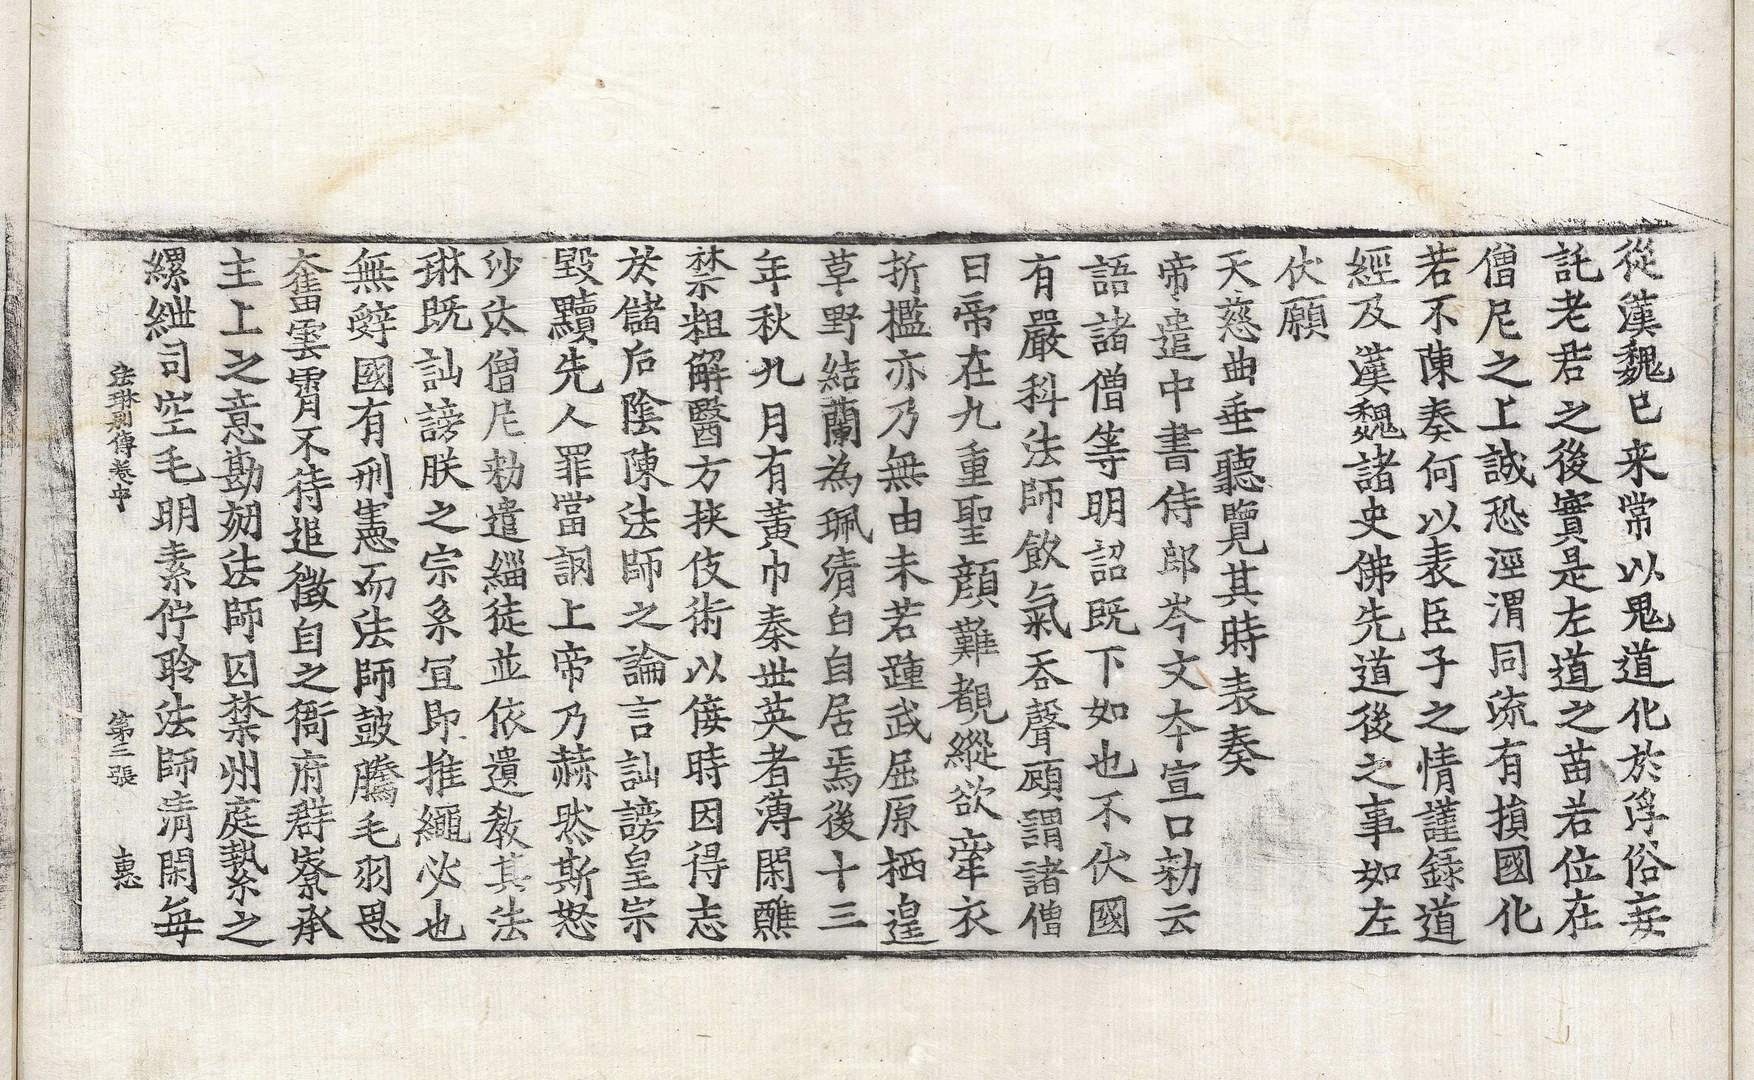 從漢魏已来常以鬼道化於浮俗妄
託老君之後實是左道之苗若位在
僧尼之上誠恐涇渭同流有損國化
若不陳奏何以表臣子之情謹錄道
經及漢魏諸史佛先道後之事如左
伏願
天慈曲垂聽覽其時表奏
帝遣中書侍郎岑文本宣口勅云
語諸僧等明詔既下如也不伏國
有嚴科法師飲氣吞聲顧謂諸僧
曰帝在九重聖顏難覩縱欲牽衣
折檻亦乃無由未若踵武屈原栖遑
草野結蘭為珮清白自居焉後十三
年秋九月有黃巾秦世英者薄閑醮
禁粗解醫方挾伎術以倿時因得志
於儲后陰陳法師之論言訕謗皇宗
毀黷先人罪當詷上帝乃赫然斯怒
沙汰僧尼勑遣緇徒並依遺教其法
琳既訕謗朕之宗系冝即推繩必也
無辭國有刑憲而法師鼓騰毛羽思
奮雲霄不待追徵自之衙府群寮承
主上之意勘劾法師囚禁州庭縶之
縲紲司空毛明素伫聆法師清閑每
法琳別傳卷中　第三張　惠